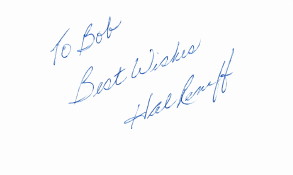 To Bob
Best Wishes
Hal Reniff